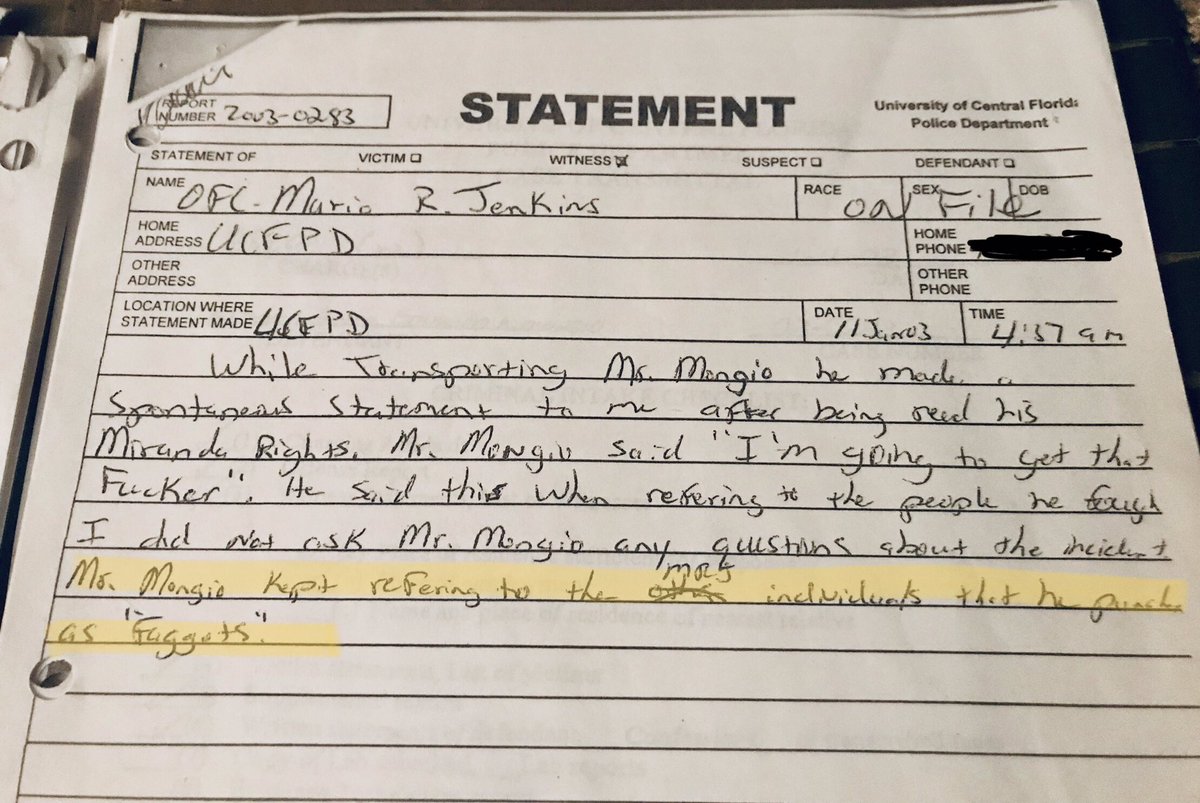 REPORT
NUMBER 2003-0283
STATEMENT
University of Central Florida
Police Department
STATEMENT OF VICTIM WITNESS SUSPECT DEFENDANT
NAME OFC. Mario R. Jenkins RACE SEX DOB
on File
HOME
ADDRESS UCFPD
HOME
PHONE
OTHER
ADDRESS
OTHER
PHONE
LOCATION WHERE
STATEMENT MADE UCFPD
DATE 11Jan03
TIME 4:37 am
While Transporting Mr. Mongio he made a
Spontaneous Statement to me after being read his
Miranda Rights. Mr. Mongio said "I'm going to get that
Fucker". He said this when refering to the people he
I did not ask Mr. Mongio any questions about the incident
Mr. Mongio kept refering to the individuals that he
as "Faggots".